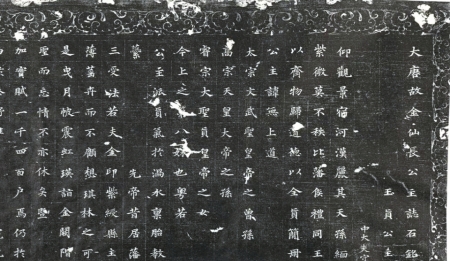 大唐故金仙長公主誌石銘
玉真公主
中大夫守
仰觀景宿河漢麗其天孫緬
紫微莫不秩比藩侯禮同王
以齊物歸道德以全真簡冊
公主諱無上道
太宗文武聖皇帝之曾孫
高宗天皇大帝之孫
睿宗大聖真皇帝之女
今上之八妹也粵若
公主派真氣於渦水稟胎教
先帝昔居藩
三受法若夫金印紫綬縣主
薄蕣卉而不顧想琪林之可
是曳月帔震虹瑛詣金闕階
聖而忘情不亦休矣
加實賦一千四百戶焉仍於